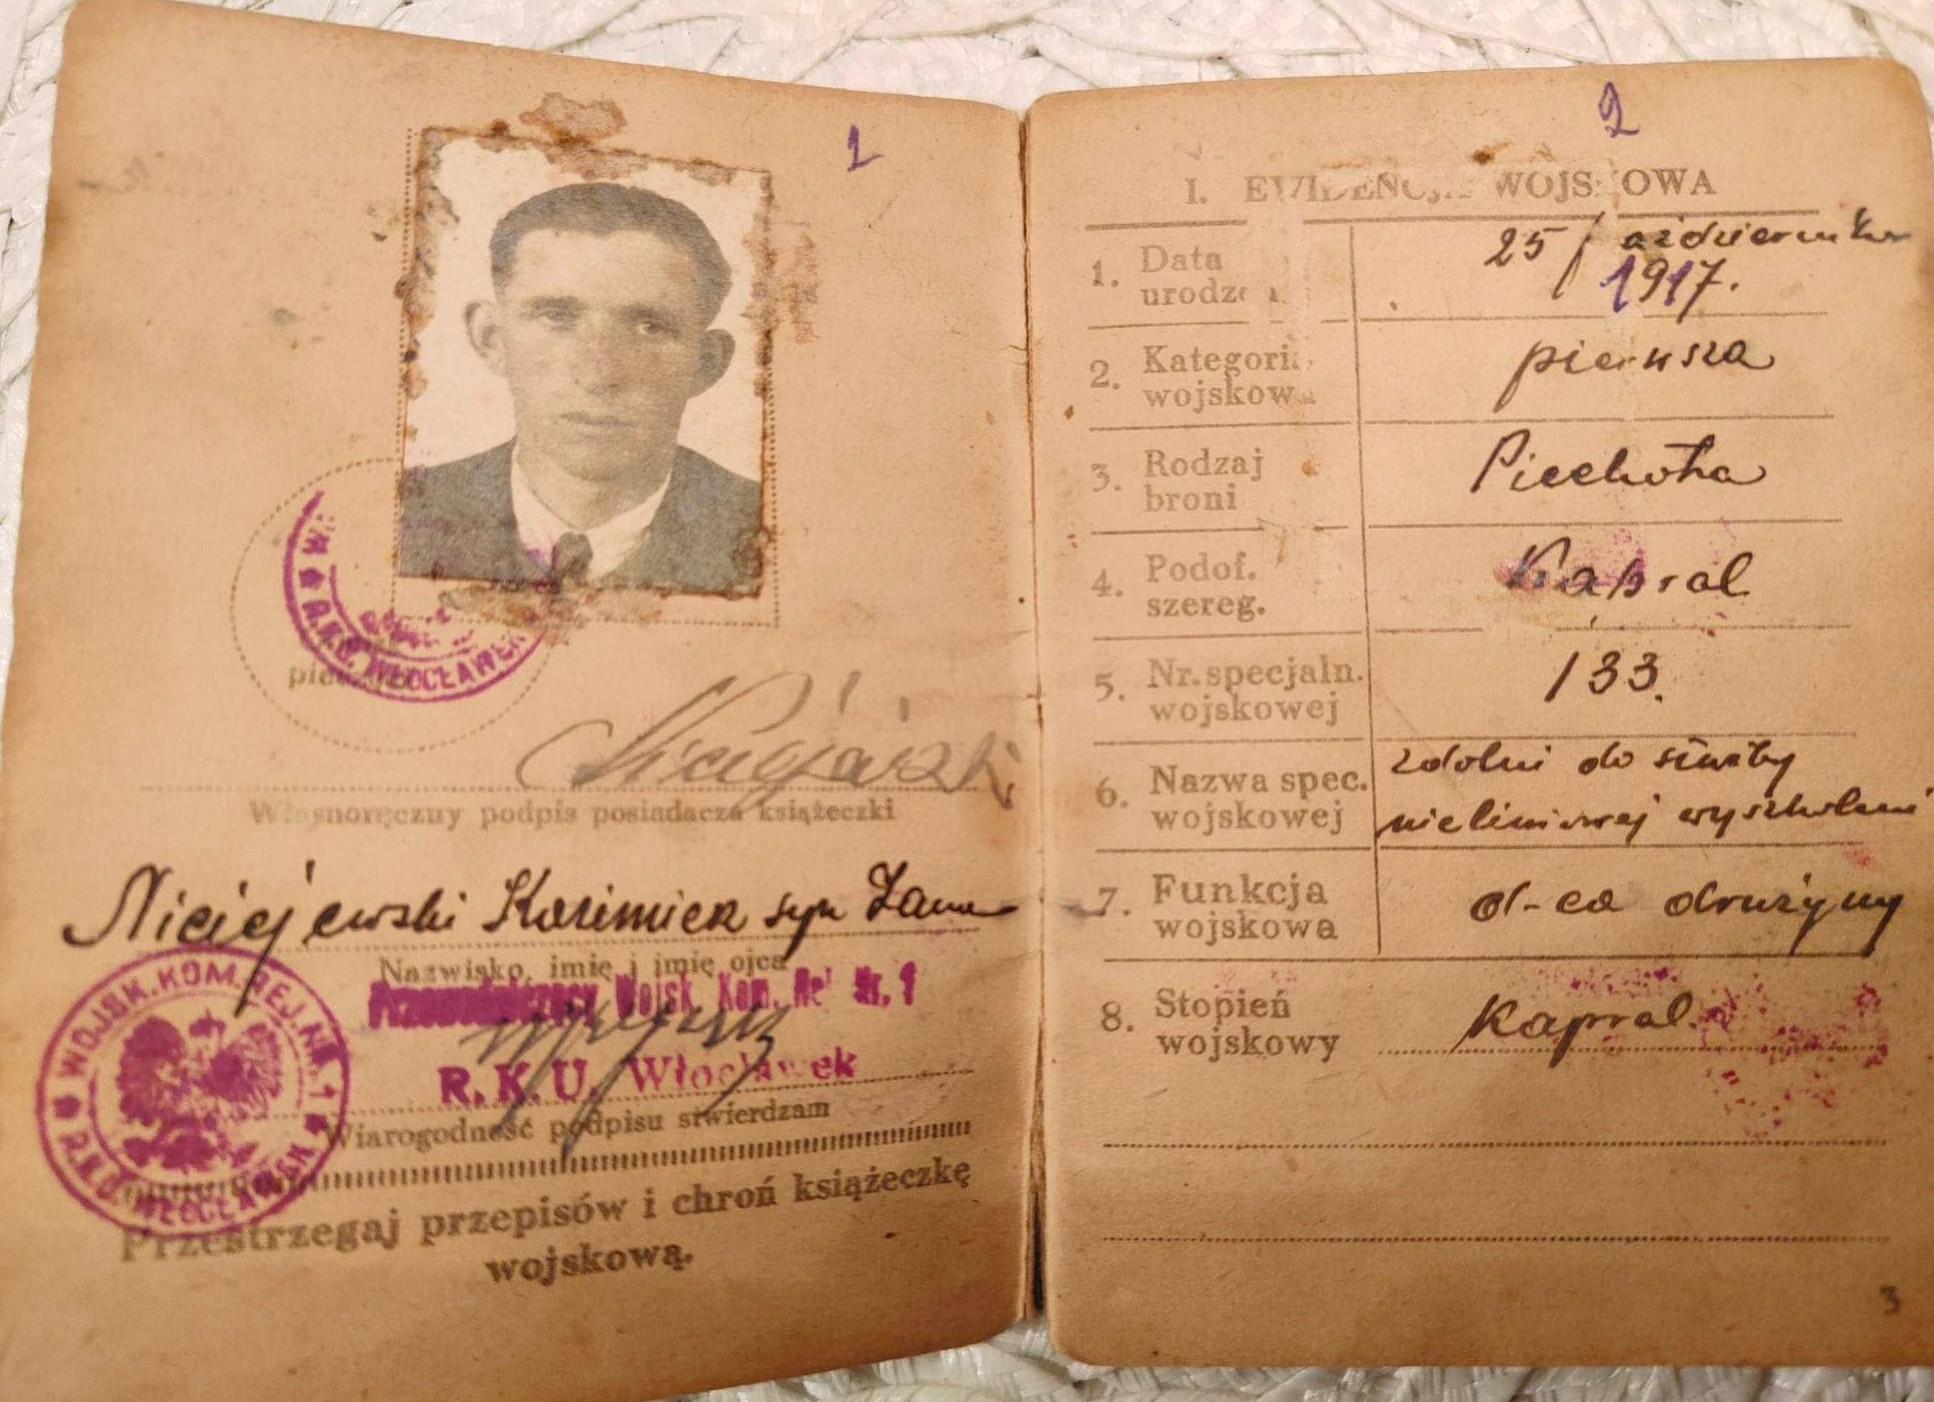 1
W.
R.K.U. WŁOCŁAWEK
Niciejewski
Własnoręczny podpis posiadacza książeczki
Niciejewski Kazimierz syn Jana
Nazwisko, imię i imię ojca
Przewodniczący Wojsk. Kom. Rej. Nr. 1
R. K. U. Włocławek
WOJSK. KOM. REJ. NR. 1
R.K.U. WŁOCŁAWEK
Wiarogodność podpisu stwierdzam
Przestrzegaj przepisów i chroń książeczkę
wojskową.
2
I. EWIDENCJA WOJSKOWA
1. Data urodz 25 października
1917.
2. Kategoria wojskowa pierwsza
3. Rodzaj broni Piechota
4. Podof. szereg. Kapral
5. Nr. specjaln. wojskowej 133.
6. Nazwa spec. wojskowej zdolni do służby
nieliniowej wyszkoleni
7. Funkcja wojskowa d-ca drużyny
8. Stopień wojskowy Kapral.
3